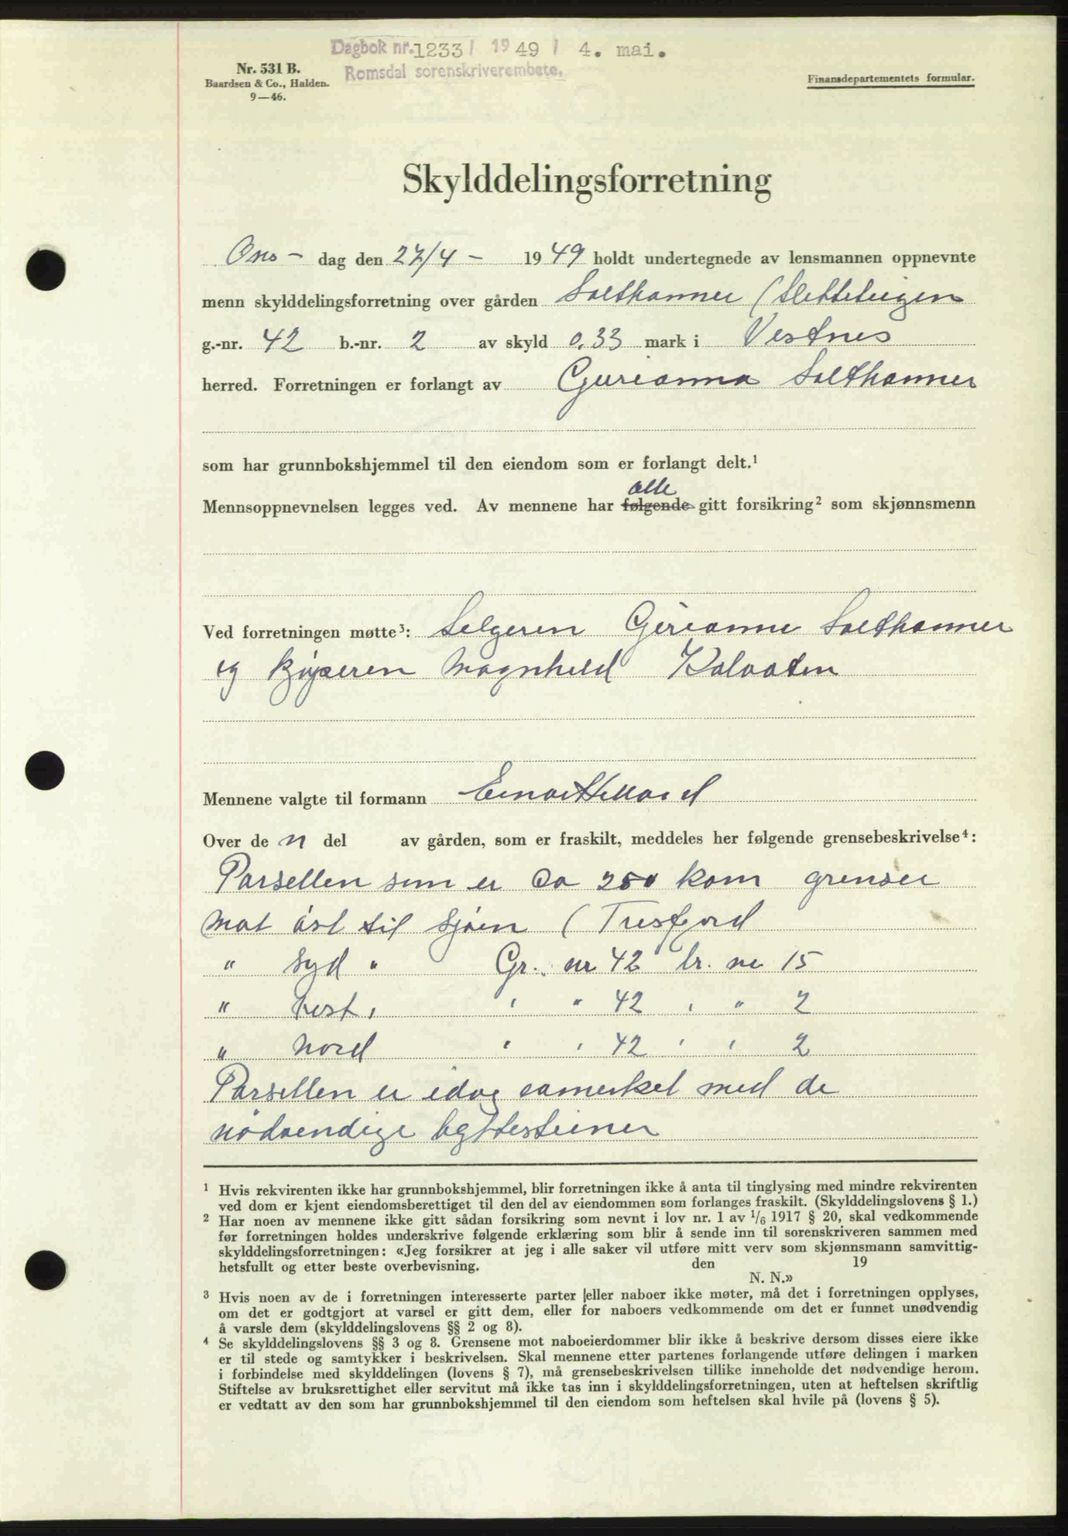 Dagbok nr. 1233 / 1949 / 4. mai.
Romsdal sorenskriverembete.
Nr. 531 B.
Baardsen & Co., Halden.
9—46.
Finansdepartementets formular.
Skylddelingsforretning
Ons- dag den 27/4 - 1949 holdt undertegnede av lensmannen oppnevnte
menn skylddelingsforretning over gården Salthammer (Sletteteigen
g.-nr. 42 b.-nr. 2 av skyld 0.33 mark i Vestnes
herred. Forretningen er forlangt av Gurianna Salthammer
som har grunnbokshjemmel til den eiendom som er forlangt delt.¹
alle
Mennsoppnevnelsen legges ved. Av mennene har følgende gitt forsikring² som skjønnsmenn
Ved forretningen møtte³: Selgeren Gurianne Salthammer
og kjøperen Magnhild
Mennene valgte til formann Einar
Over den del av gården, som er fraskilt, meddeles her følgende grensebeskrivelse⁴:
Parsellen som er Ca 250 kvm grenser
mot øst til sjøen (Tresfjord
" Syd " Gr. nr 42 br. nr 15
" Vest, " " 42 " " 2
" Nord " " 42 " " 2
Parsellen er idag avmerket med de
nødvendige byttesteiner
¹ Hvis rekvirenten ikke har grunnbokshjemmel, blir forretningen ikke å anta til tinglysing med mindre rekvirenten
ved dom er kjent eiendomsberettiget til den del av eiendommen som forlanges fraskilt. (Skylddelingslovens § 1.)
² Har noen av mennene ikke gitt sådan forsikring som nevnt i lov nr. 1 av 1/6 1917 § 20, skal vedkommende
før forretningen holdes underskrive følgende erklæring som blir å sende inn til sorenskriveren sammen med
skylddelingsforretningen: «Jeg forsikrer at jeg i alle saker vil utføre mitt verv som skjønnsmann samvittig-
hetsfullt og etter beste overbevisning. den 19
N. N.»
³ Hvis noen av de i forretningen interesserte parter eller naboer ikke møter, må det i forretningen opplyses,
om det er godtgjort at varsel er gitt dem, eller for naboers vedkommende om det er funnet unødvendig
å varsle dem (skylddelingslovens §§ 2 og 8).
⁴ Se skylddelingslovens §§ 3 og 8. Grensene mot naboeierdommer blir ikke å beskrive dersom disses eiere ikke
er til stede og samtykker i beskrivelsen. Skal mennene etter partenes forlangende utføre delingen i marken
i forbindelse med skylddelingen (lovens § 7), må grensebeskrivelsen tillike inneholde det nødvendige herom.
Stiftelse av bruksrettighet eller servitut må ikke tas inn i skylddelingsforretningen, uten at heftelsen skriftlig
er vedtatt av den som har grunnbokshjemmel til den eiendom som heftelsen skal hvile på (lovens § 5).